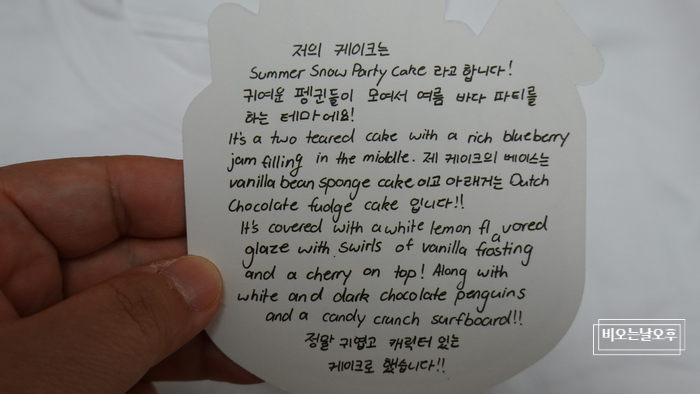 저의 케이크는
Summer Snow Party Cake 라고 합니다!
귀여운 펭귄들이 모여서 여름 바다 파티를
하는 테마에요!
It's a two teared cake with a rich blueberry
jam filling in the middle. 제 케이크의 베이스는
vanilla bean sponge cake이고 아래거는 Dutch
Chocolate fudge cake 입니다!!
It's covered with a white lemon flavored
glaze with swirls of vanilla frosting
and a cherry on top! Along with
white and dark chocolate penguins
and a candy crunch surfboard!!
정말 귀엽고 캐릭터 있는
케이크로 했습니다!!
비오는날오후